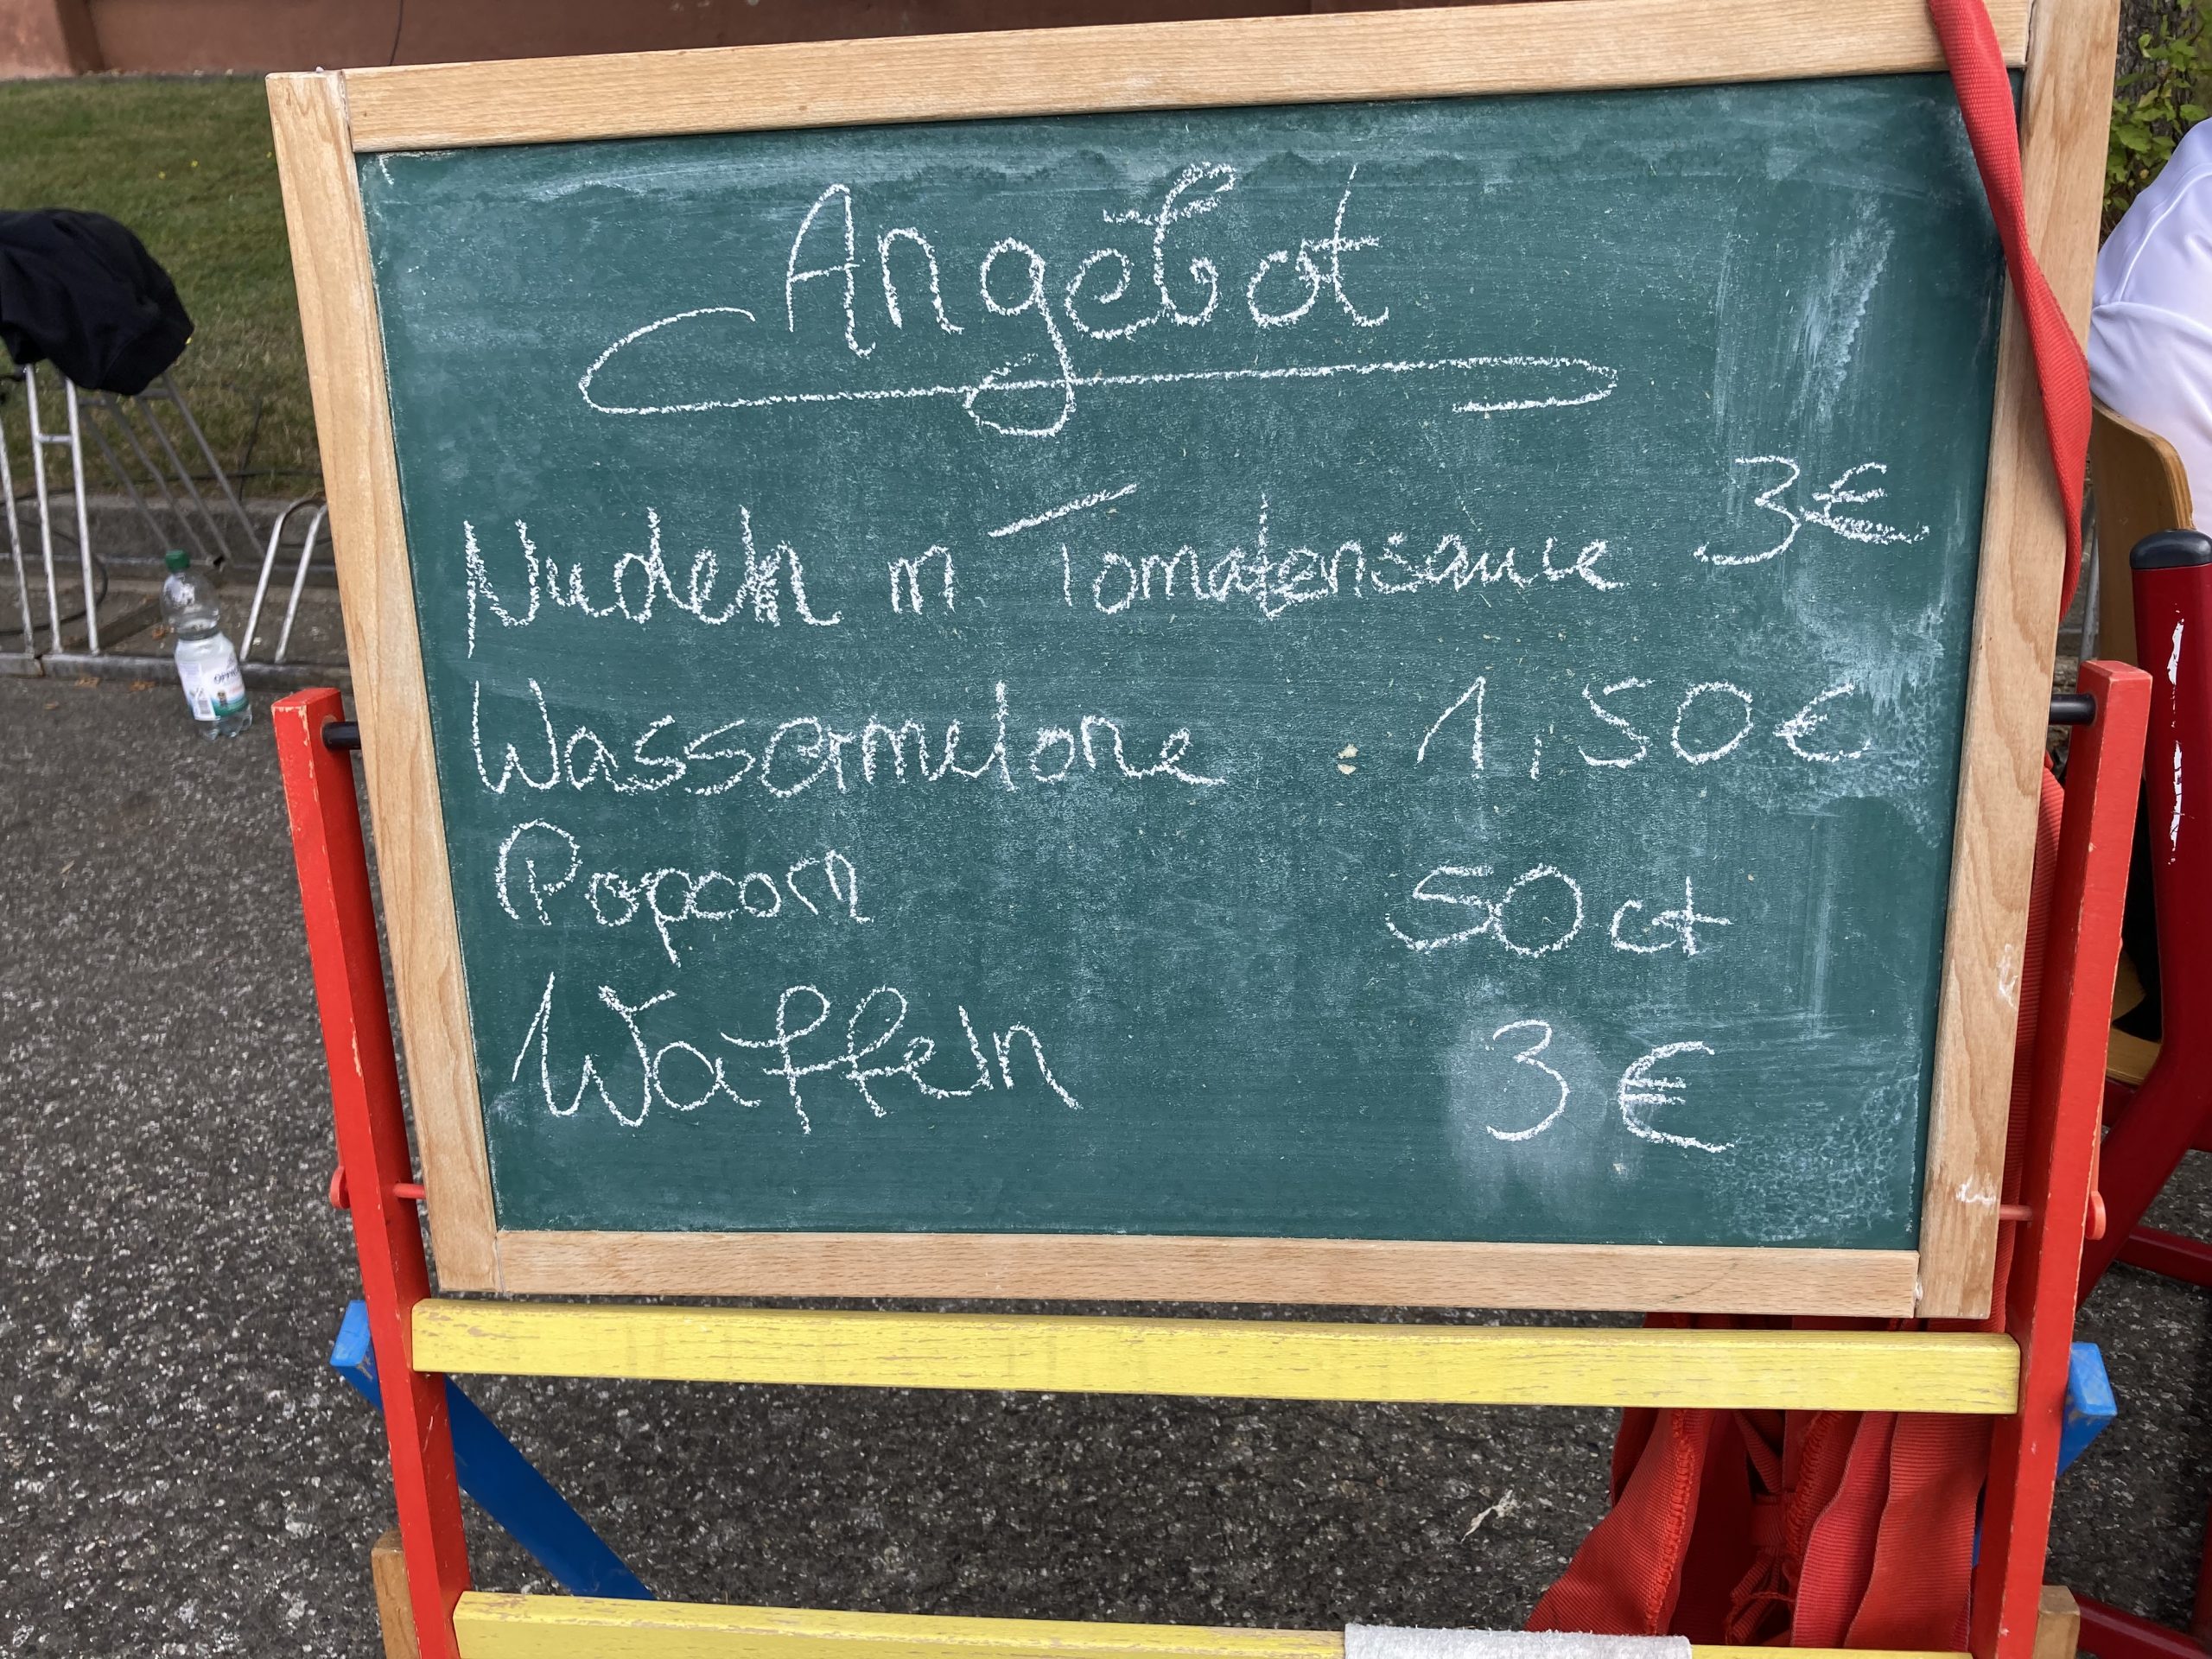 Angebot
Nudeln in Tomatensauce 3€
Wassermelone : 1,50€
Popcorn 50 ct
Waffeln 3 €